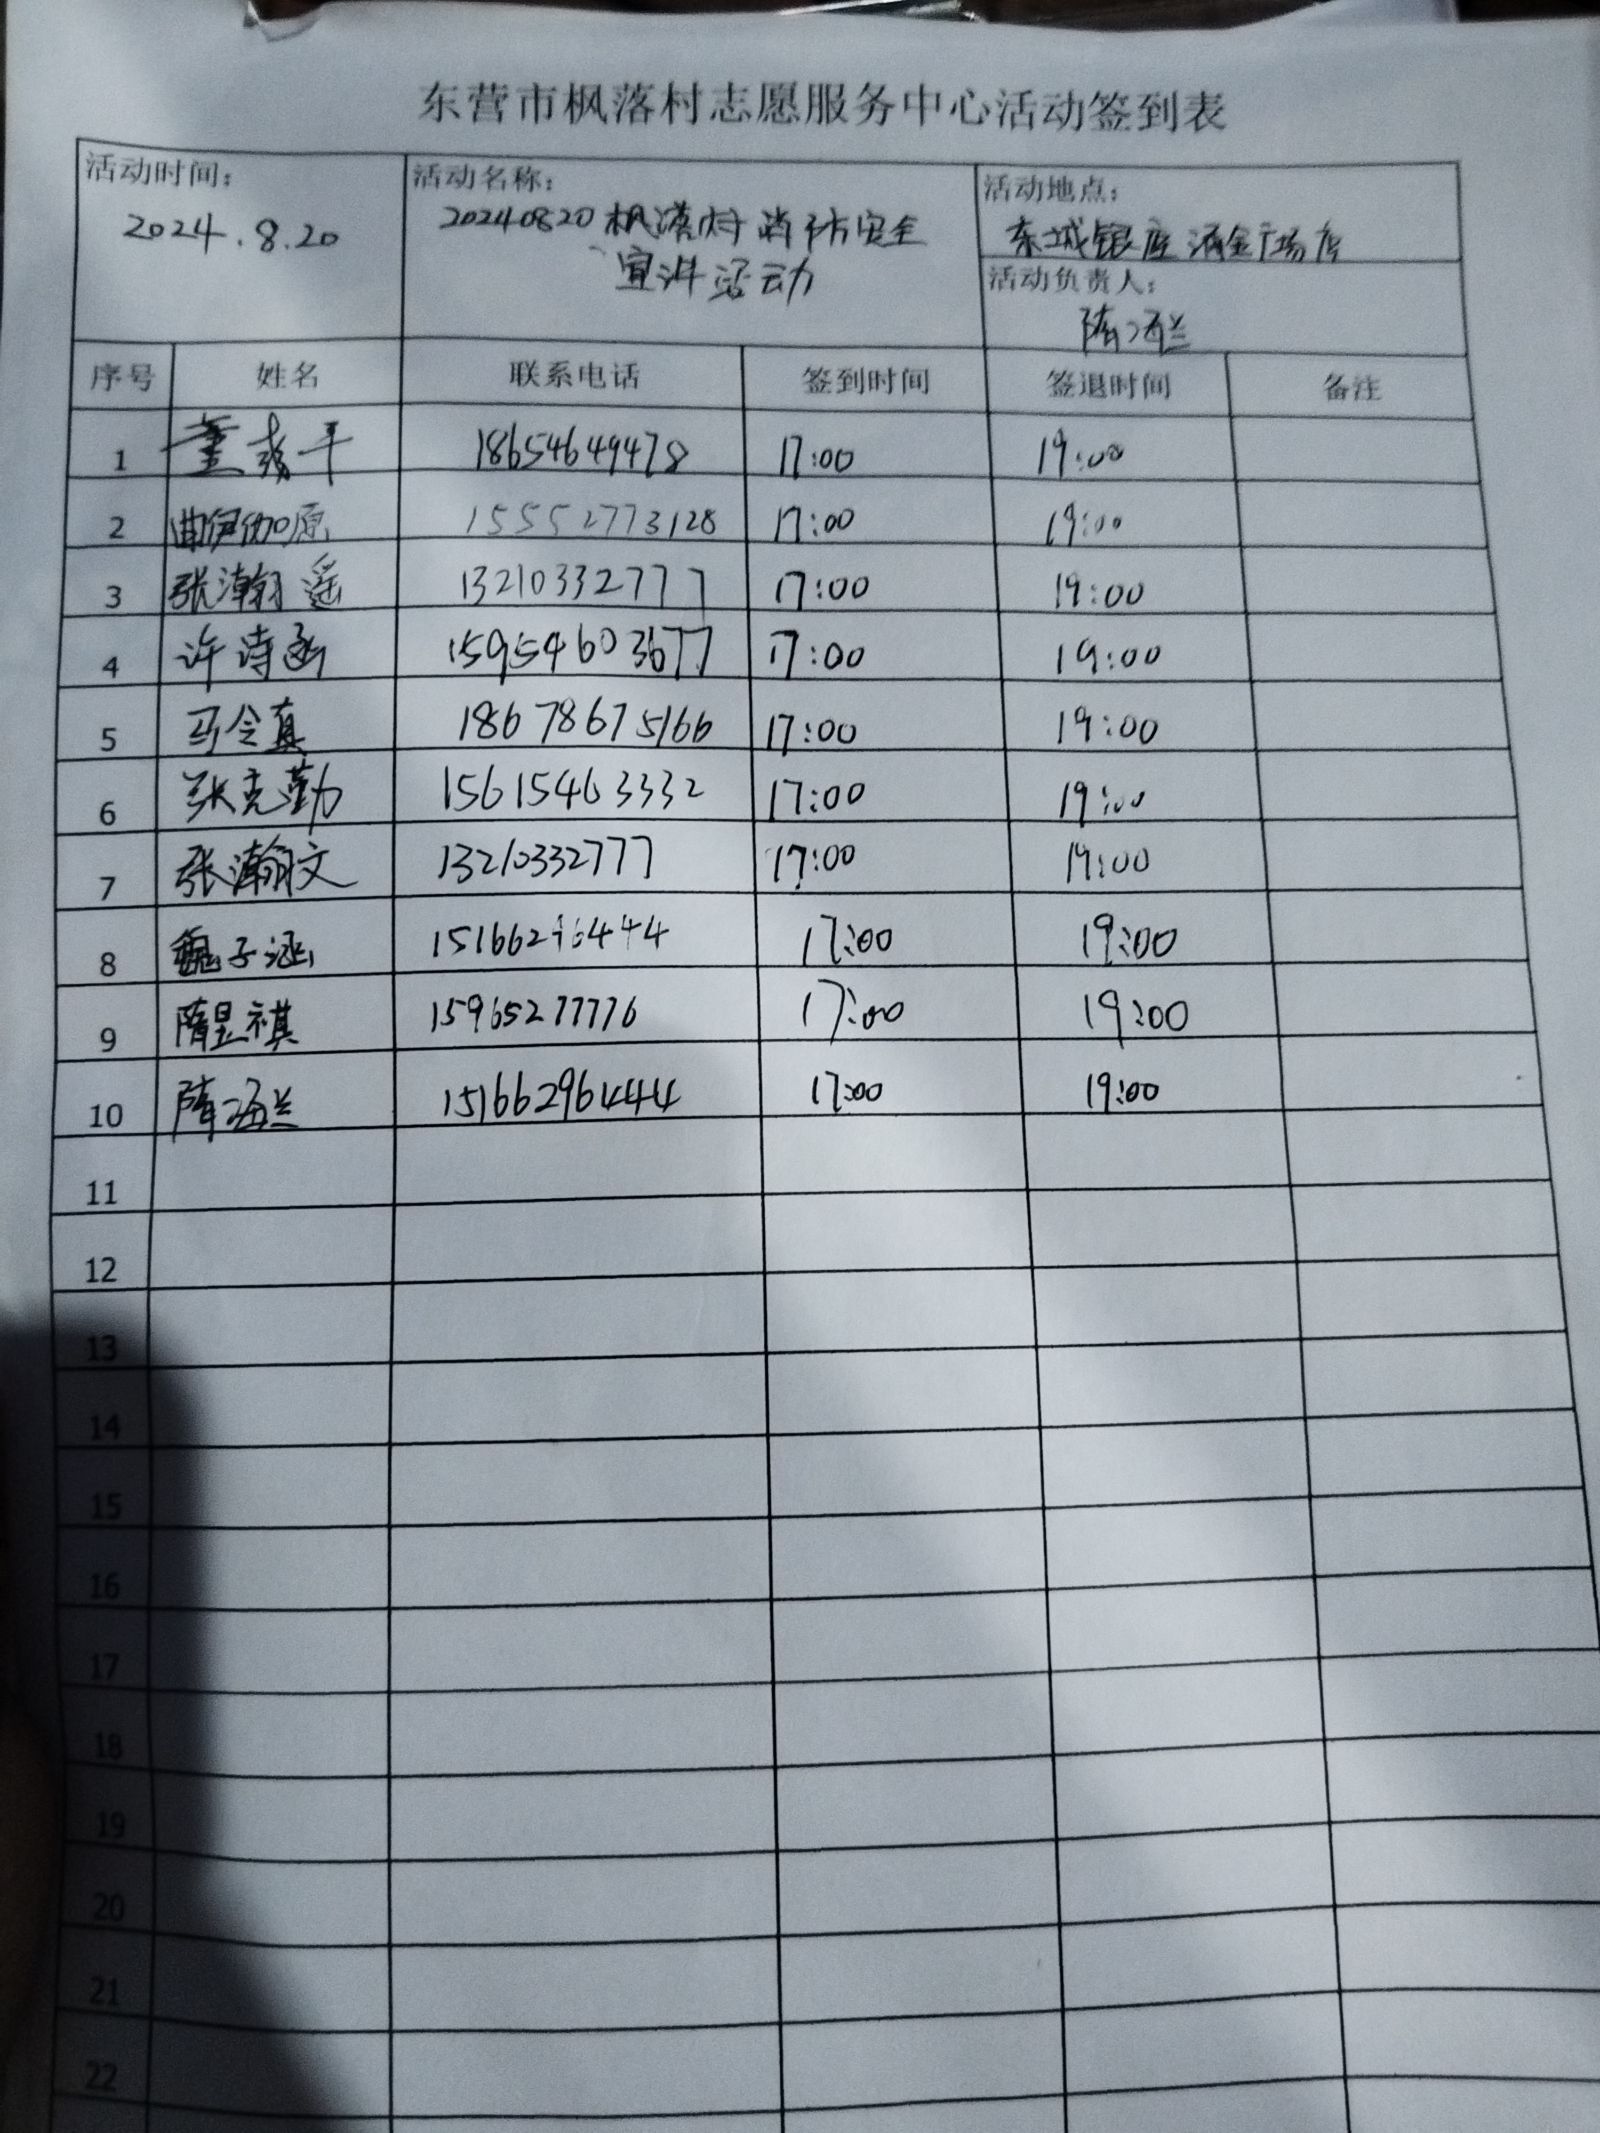 东营市枫落村志愿服务中心活动签到表
活动时间:
2024.8.20
活动名称:
20240820枫落村消防安全
宣讲活动
活动地点:
东城银座涌金广场店
活动负责人:
隋海兰
序号 姓名 联系电话 签到时间 签退时间 备注
1 董 18654649478 17:00 19:00
2 曲伊伽原 15552773128 17:00 19:00
3 张瀚遥 13210332777 17:00 19:00
4 许诗函 15954603677 17:00 19:00
5 马令真 18678675166 17:00 19:00
6 张克勤 15615463332 17:00 19:00
7 张瀚文 13210332777 17:00 19:00
8 魏子涵 15166296444 17:00 19:00
9 隋昱祺 15965277776 17:00 19:00
10 隋海兰 15166296444 17:00 19:00
11
12
13
14
15
16
17
18
19
20
21
22